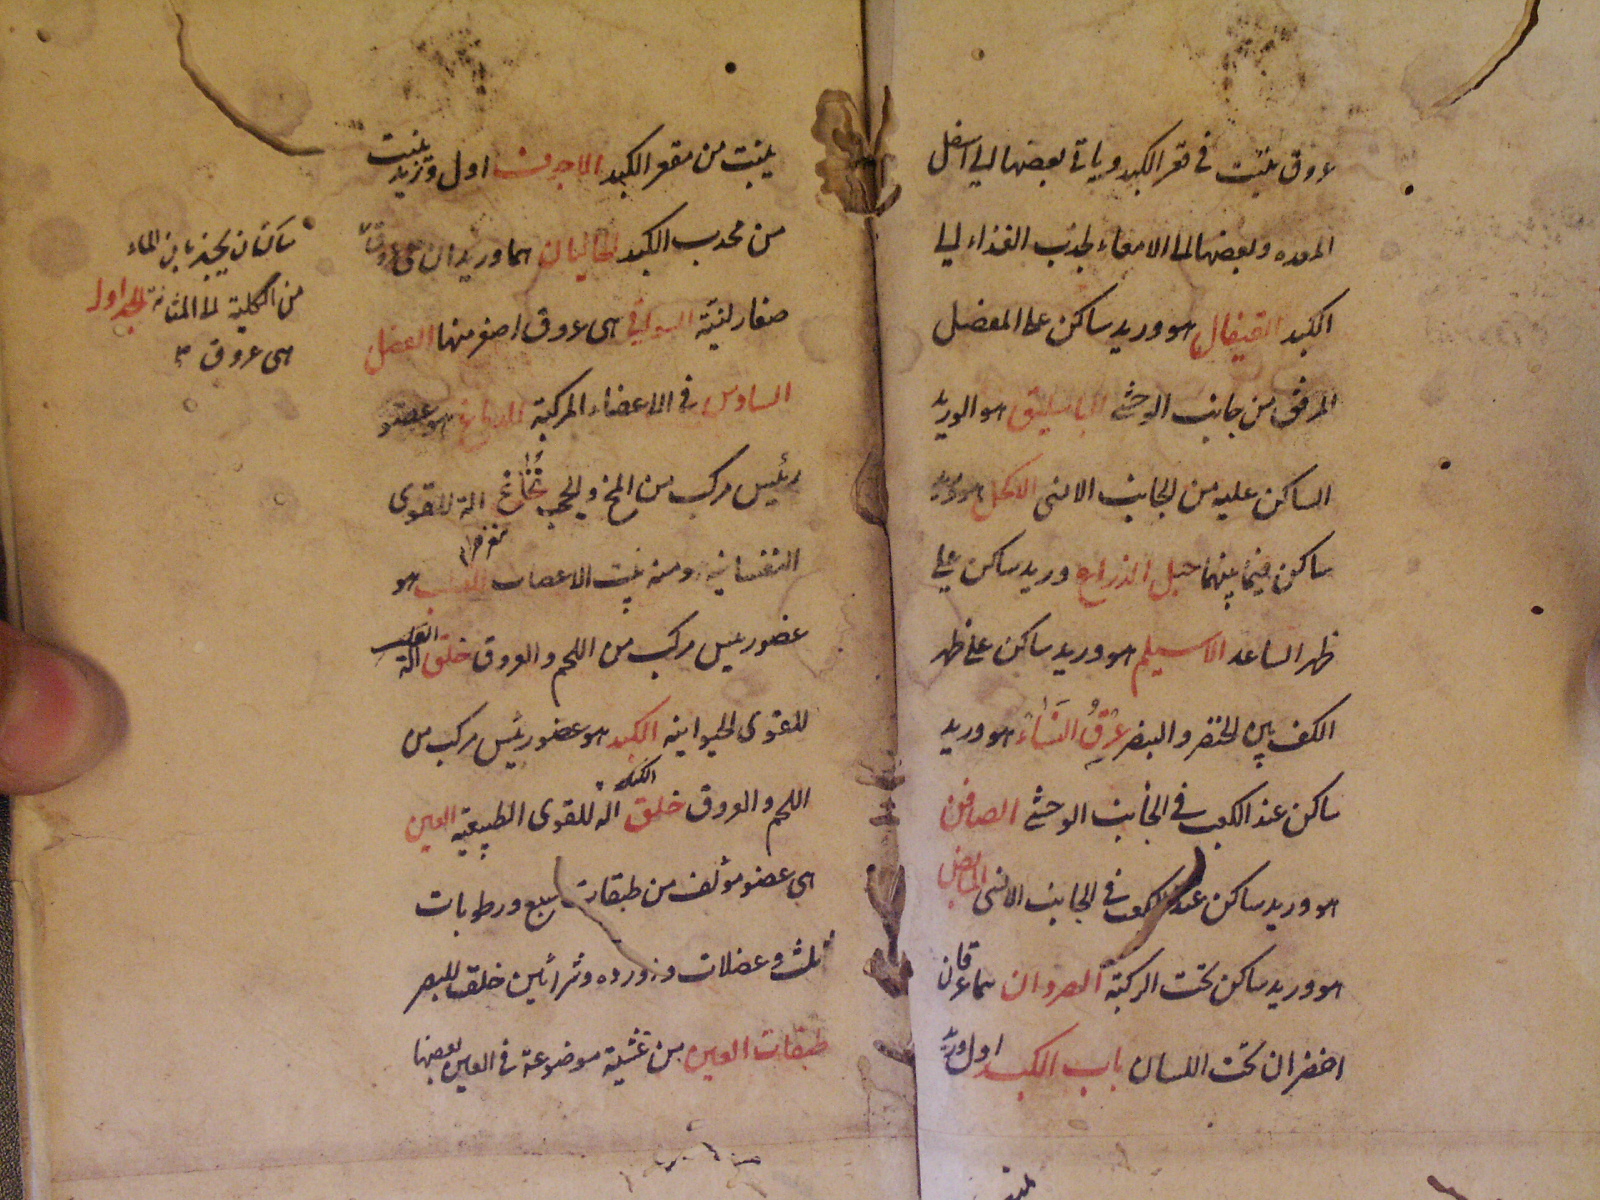 عروق تنبت في قعر الكبد وياتى بعضها الى اسفل
المعده وبعضها الى الامعاء لجذب الغذاء الى
الكبد القيفال هو وريد ساكن على المفصل
المرفق من جانب الوحشي الباسليق هو الوريد
الساكن عليه من الجانب الانسى الاكحل هو وريد
ساكن فيما بينهما حبل الذراع وريد ساكن على
ظهر الساعد الاسيلم هو وريد ساكن على ظهر
الكف بين الخنصر والبنصر عرق النساء هو وريد
ساكن عند الكعب في الجانب الوحشي الصافن
هو وريد ساكن عند الكعب في الجانب الانسى المابض
هو وريد ساكن تحت الركبة الصردان هما عرقان
اخضران تحت اللسان باب الكبد اول وريد
ينبت من مقعر الكبد الاجوف اول وريد ينبت
من محدب الكبد الحالبان هما وريدان
صغار لينة السواقي هى عروق اصغر منها الفصل
السادس في الاعضاء المركبة الدماغ هو عضو
رئيس مركب من المخ والحجب آلة للقوى
النفسانية ومنه تنبت الاعصاب القلب هو
عضو رئيس مركب من اللحم والعروق خلق القلب آلة
للقوى الحيوانية الكبد هو عضو رئيس مركب من
اللحم والعروق خلق الكبد آلة للقوى الطبيعية العين
هى عضو مؤلف من طبقات سبع ورطوبات
ثلث وعضلات واورده وشرائين خلقت للبصر
طبقات العين من اغشية موضوعة في العين بعضها
ساكنان يجذبان الماء
من الكلية الى المثانة الجداول
هى عروق